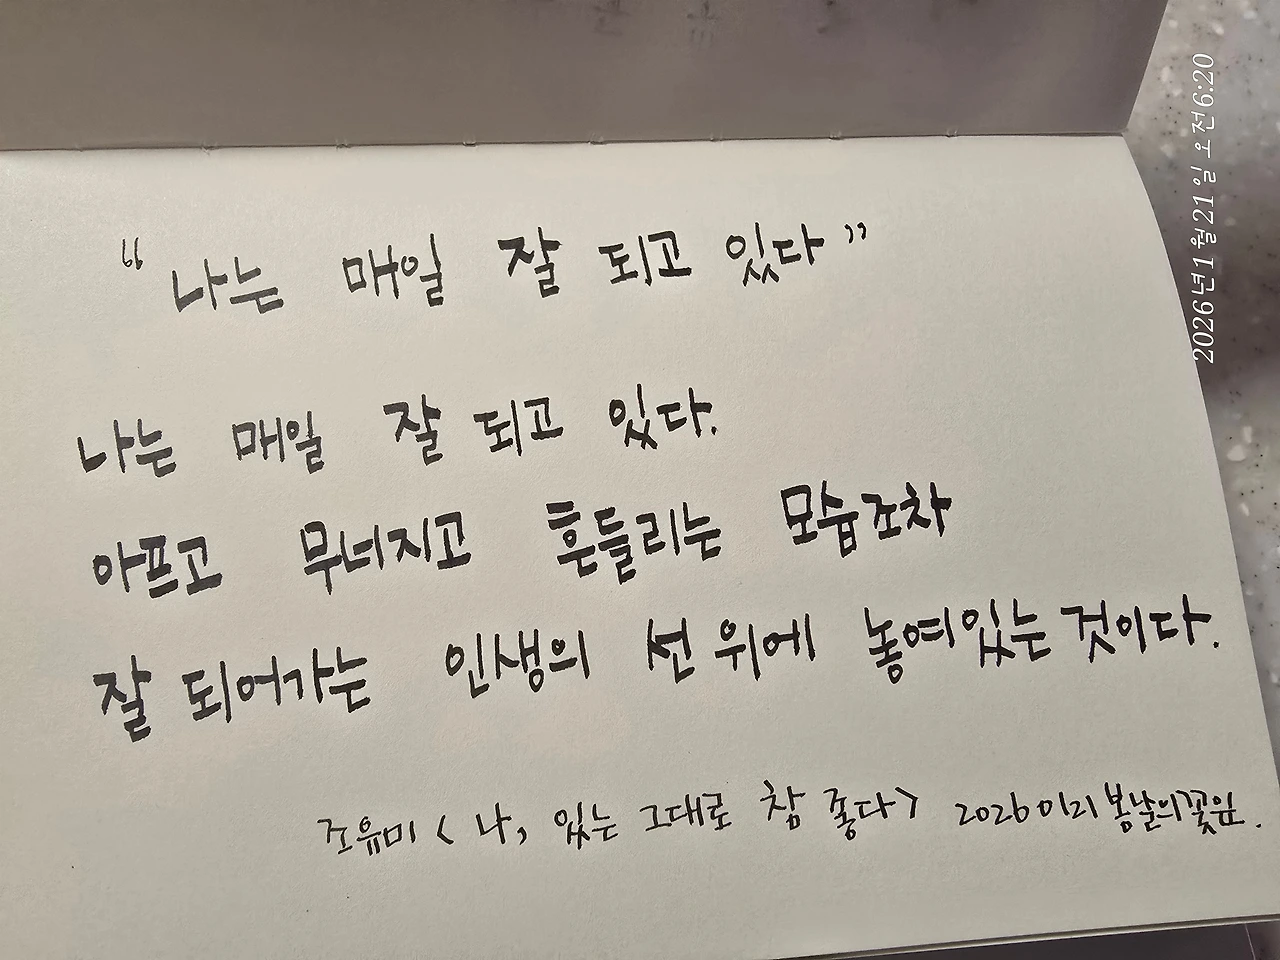 "나는 매일 잘 되고 있다"
나는 매일 잘 되고 있다.
아프고 무너지고 흔들리는 모습조차
잘 되어가는 인생의 선 위에 놓여있는 것이다.
조유미 < 나, 있는 그대로 참 좋다> 20260121 봄날의꽃잎.
2026년 1월 21일 오전 6:20